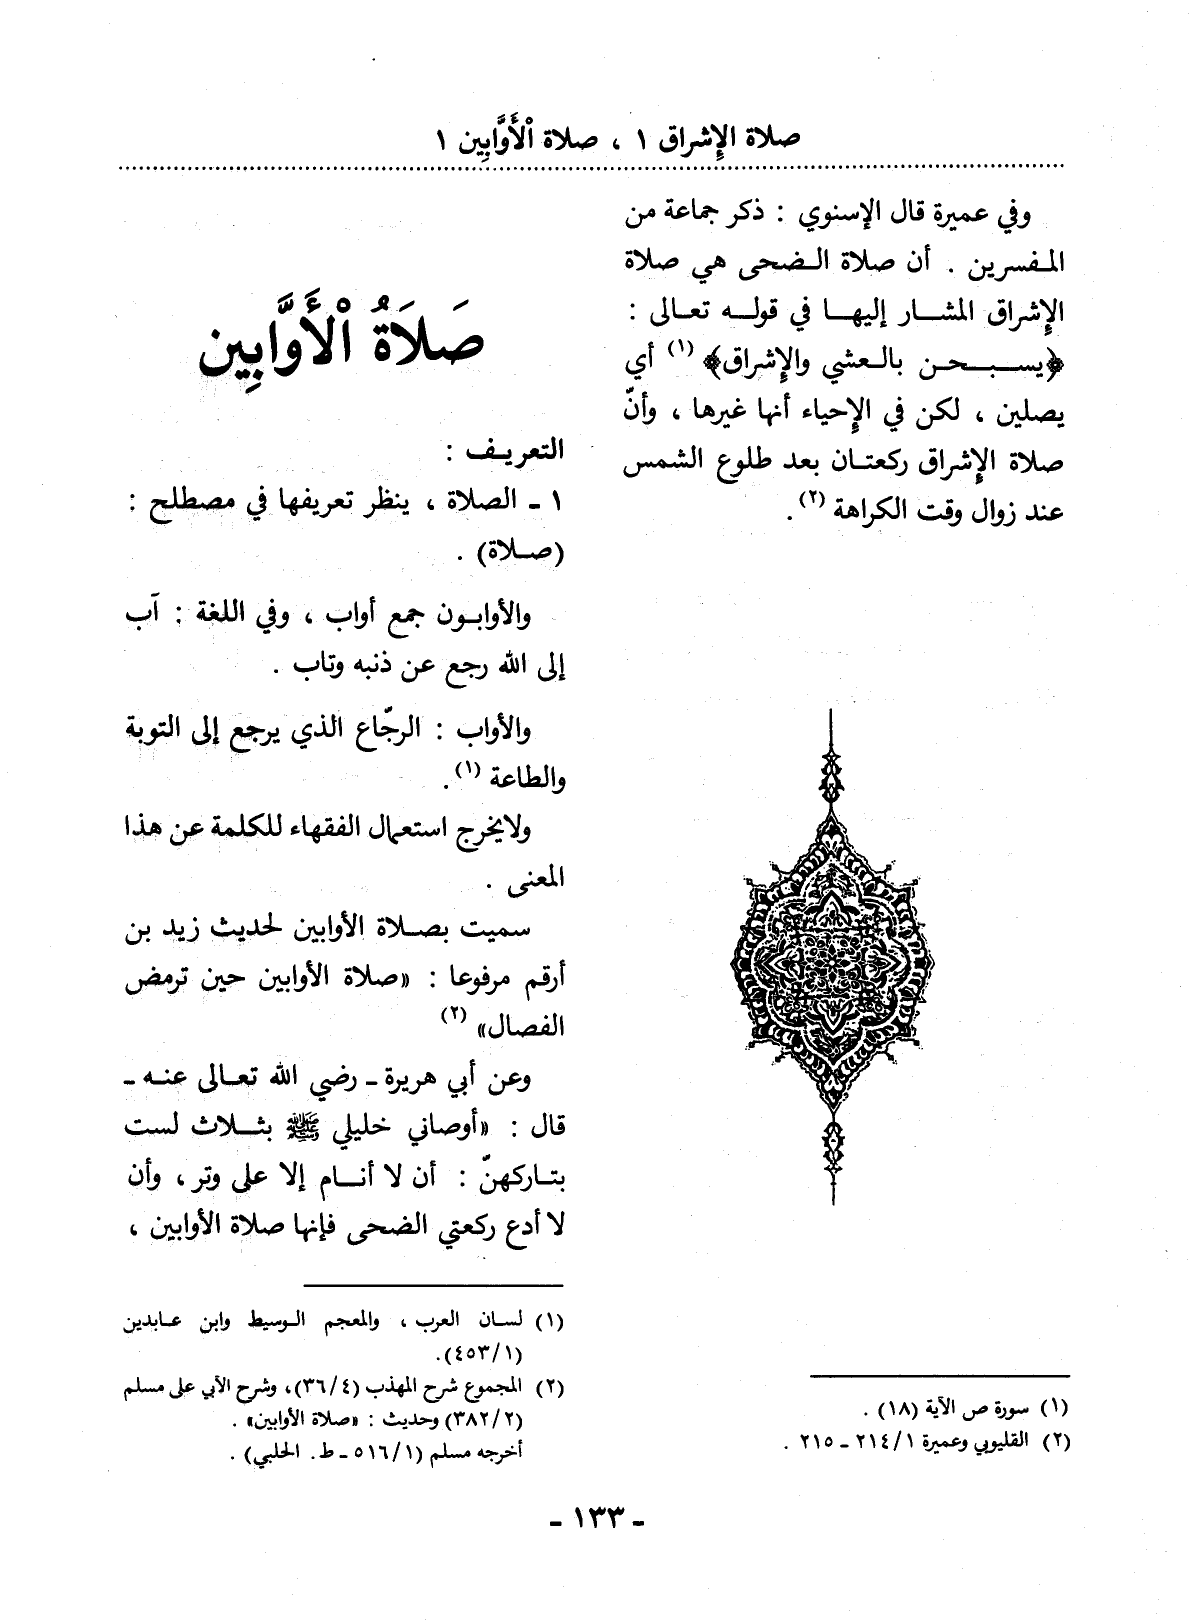 صلاة الإشراق ١ ، صلاة الْأَوَّابِين ١
وفي عميرة قال الإسنوي : ذكر جماعة من
المفسرين . أن صلاة الضحى هي صلاة
الإشراق المشار إليها في قوله تعالى :
﴿يسبحن بالعشي والإشراق﴾ (١) أي
يصلين ، لكن في الإحياء أنها غيرها ، وأنّ
صلاة الإشراق ركعتان بعد طلوع الشمس
عند زوال وقت الكراهة (٢) .
(١) سورة ص الآية (١٨) .
(٢) القليوبي وعميرة ٢١٤/١ ـ ٢١٥ .
صَلاَةُ الْأَوَّابِين
التعريف :
١ ـ الصلاة ، ينظر تعريفها في مصطلح :
(صلاة) .
والأوابون جمع أواب ، وفي اللغة : آب
إلى الله رجع عن ذنبه وتاب .
والأواب : الرجّاع الذي يرجع إلى التوبة
والطاعة (١) .
ولايخرج استعمال الفقهاء للكلمة عن هذا
المعنى .
سميت بصلاة الأوابين لحديث زيد بن
أرقم مرفوعا : «صلاة الأوابين حين ترمض
الفصال» (٢)
وعن أبي هريرة ـ رضي الله تعالى عنه ـ
قال : «أوصاني خليلي ﷺ بثلاث لست
بتاركهنّ : أن لا أنام إلا على وتر ، وأن
لا أدع ركعتي الضحى فإنها صلاة الأوابين ،
(١) لسان العرب ، والمعجم الوسيط وابن عابدين
(٤٥٣/١).
(٢) المجموع شرح المهذب (٣٦/٤)، وشرح الآبي على مسلم
(٣٨٢/٢) وحديث : «صلاة الأوابين» .
أخرجه مسلم (٥١٦/١ ـ ط. الحلبي) .
ـ ١٣٣ ـ